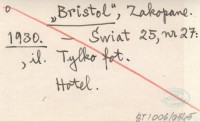 „Bristol”, Zakopane.
1930. – Świat 25, nr 27:
, il. Tylko fot.
Hotel.